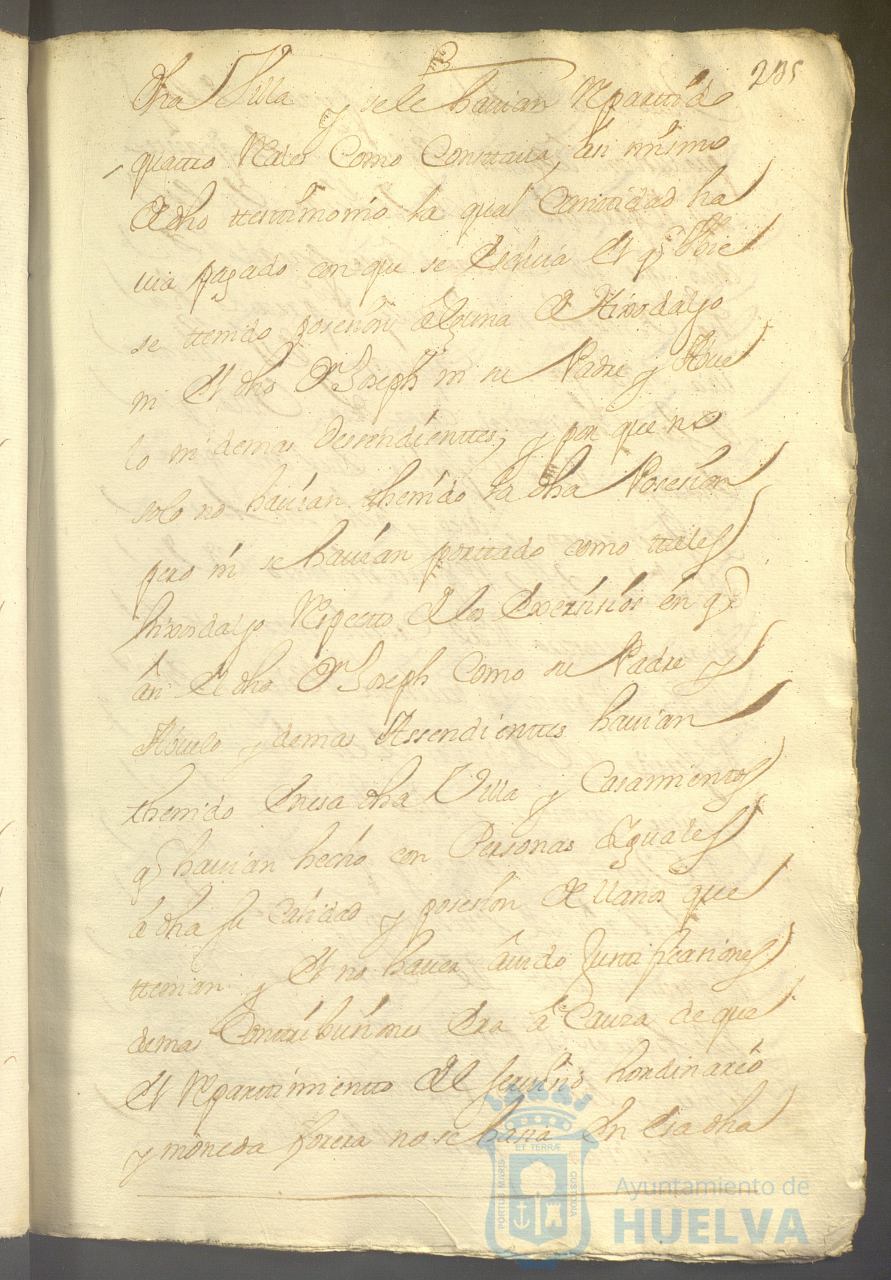 235
dha Villa y se le havian Repartido
quatro Rales Como Constava, asi mismo
de dho testimonio la qual Cantidad ha
via pagado con que se escluia el q.e Hubie
se tenido posesion alguna de Hixodalgo
ni el dho D.n Joseph ni su Padre y Abue
lo ni demas Desendienttes, y por que no
solo no havian thenido la dha Posesion
pero ni se havian porttado como ttales
hixosdalgo Respecto de los Exersisios en q.e
asi el dho D.n Joseph Como su Padre y
Abuelo y demas Assendienttes havian
thenido en esa dha Villa y Casamientos
q.e havian hecho con Personas Yguales
a dha su Calidad y posesion de llanos que
ttenian y el no haver avido Justificasiones
demas Contribusiones era a Causa de que
el Repartimiento del servisio hordinario
y moneda forera no se hasia en esa dha
PORTUS MARIS ET TERRÆ CUSTODIA
Ayuntamiento de
HUELVA